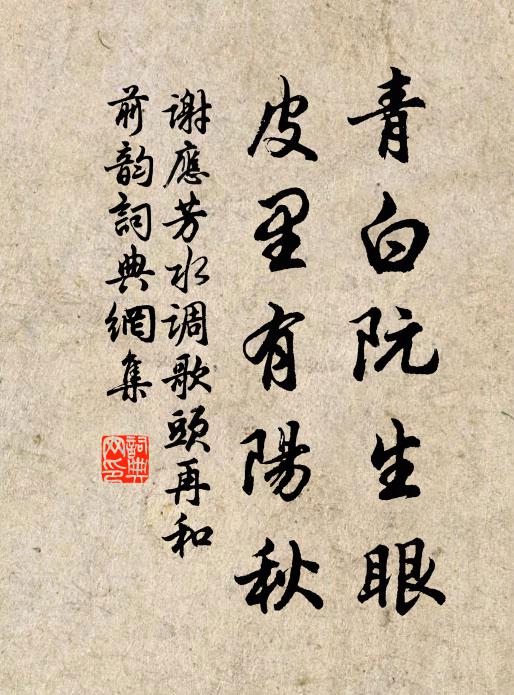 青白阮生眼
皮里有陽秋
謝應芳水调歌頭再和
前韵詞典網集
詞典
网印